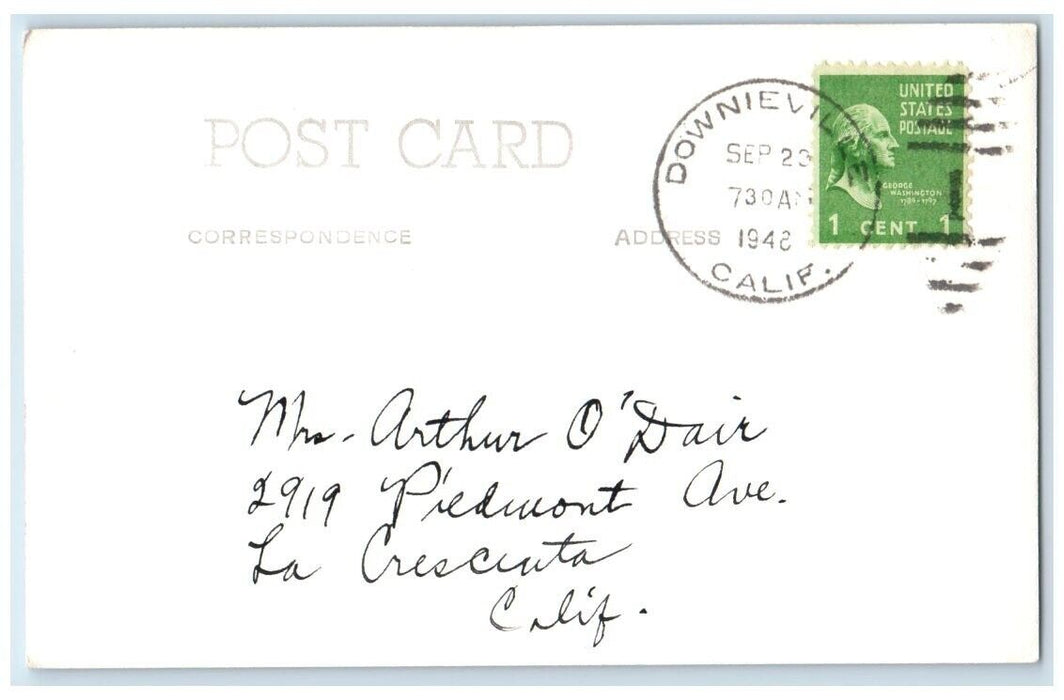 POST CARD
CORRESPONDENCE
ADDRESS
DOWNIEVILLE
SEP 23
730 AM
1948
CALIF.
UNITED
STATES
POSTAGE
GEORGE
WASHINGTON
1789-1797
1 CENT 1
1
Mrs. Arthur O'Dair
2919 Piedmont Ave.
La Crescenta
Calif.